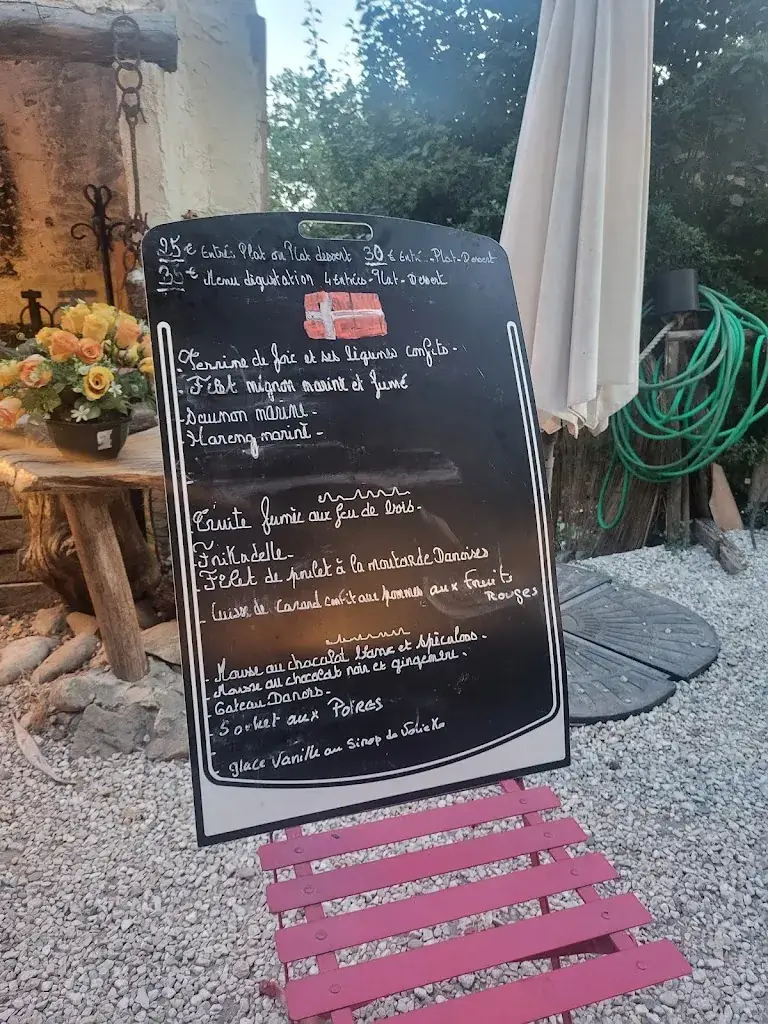 25 € Entrée Plat ou Plat dessert 30 € Entrée-Plat-Dessert
35 € Menu dégustation 4 Entrées-Plat-Dessert
- Terrine de foie et ses légumes confits -
- Filet mignon mariné et fumé
- Saumon mariné -
- Hareng mariné -
- Truite fumée aux feu de bois -
- Frikadelle -
- Filet de poulet à la moutarde Danoises
- Cuisse de canard confit aux pommes aux Fruits
Rouges
- Mousse au chocolat blanc et spéculoos -
- Mousse au chocolat noir et gingembre -
- Gateau Danois -
- Sorbet aux Poires
- glace Vanille au Sirop de